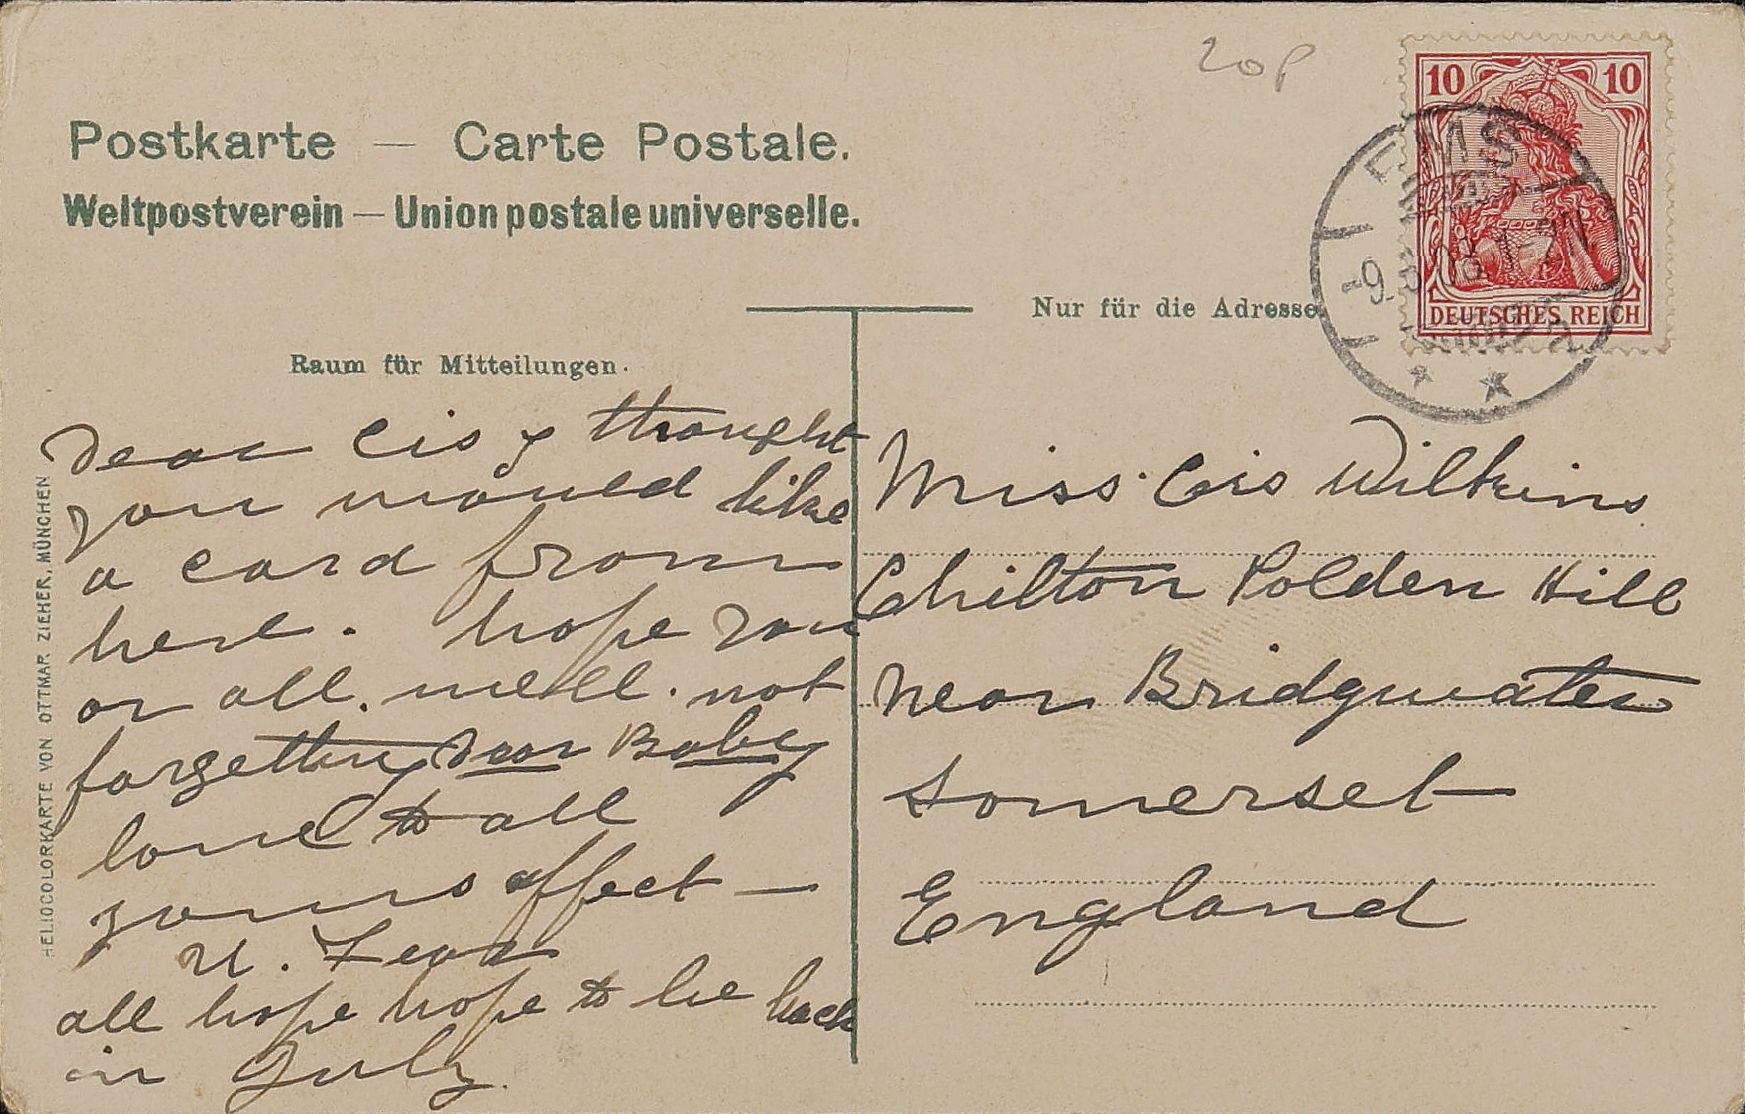 20p
10 10
DEUTSCHES REICH
EMS
-9. 08. 1-2N.
Postkarte — Carte Postale.
Weltpostverein — Union postale universelle.
Nur für die Adresse.
Raum für Mitteilungen.
Dear Cis I thought
you would like
a card from
here. hope you
or all. well. not
forgetting dear Baby
love to all
yours affect —
all hope hope to be back
in July.
Miss. Cis Wilkins
Chilton Polden Hill
near Bridgwater
Somerset
England
HELIOCOLORKARTE VON OTTMAR ZIEHER, MÜNCHEN